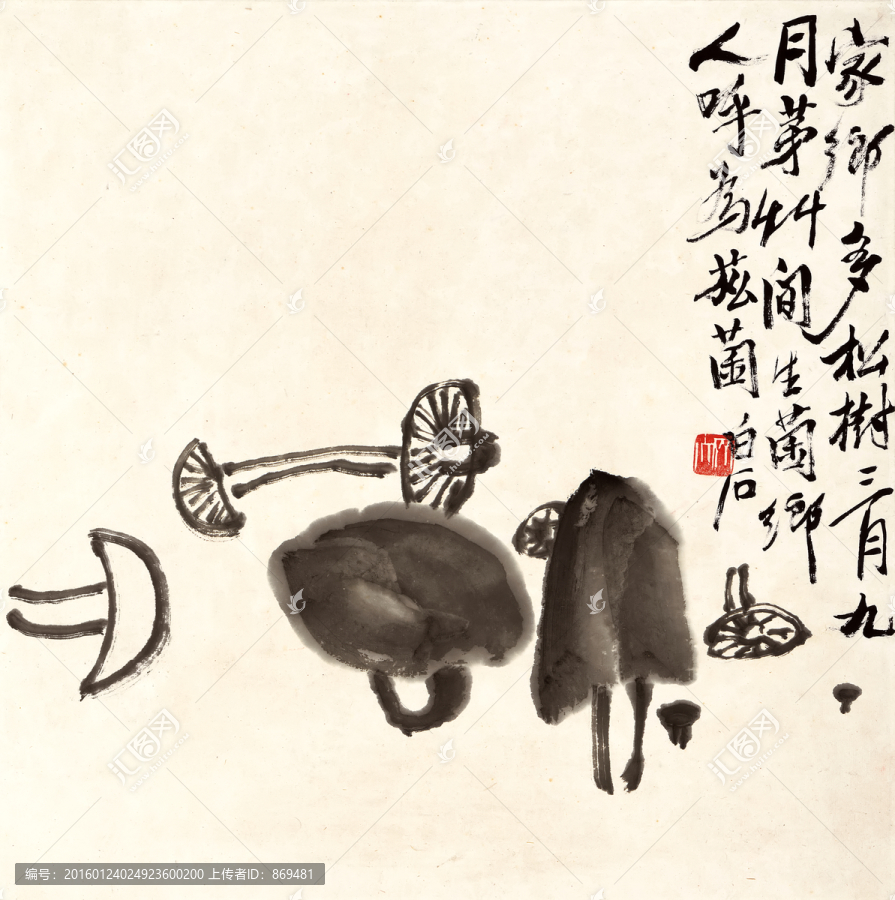 家鄉多松樹三月九
月茅艸間生菌鄉
人呼為菌
白石
汇图网
编号：20160124024923600200 上传者ID：869481